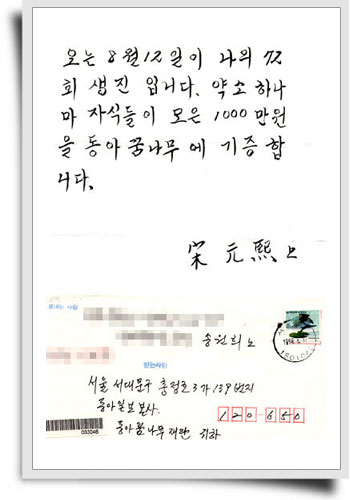 오는 8월 12일이 나의 72
회 생진 입니다. 약소 하나
마 자식들이 모은 1000 만원
을 동아 꿈나무 에 기증 합
니다.
宋 元 熙 上
보내는 사람
송원희 노
받는사람
서울 서대문구 충정로 3가 139번지
동아일보 본사.
120-650
동아꿈나무 재단 귀하
033046